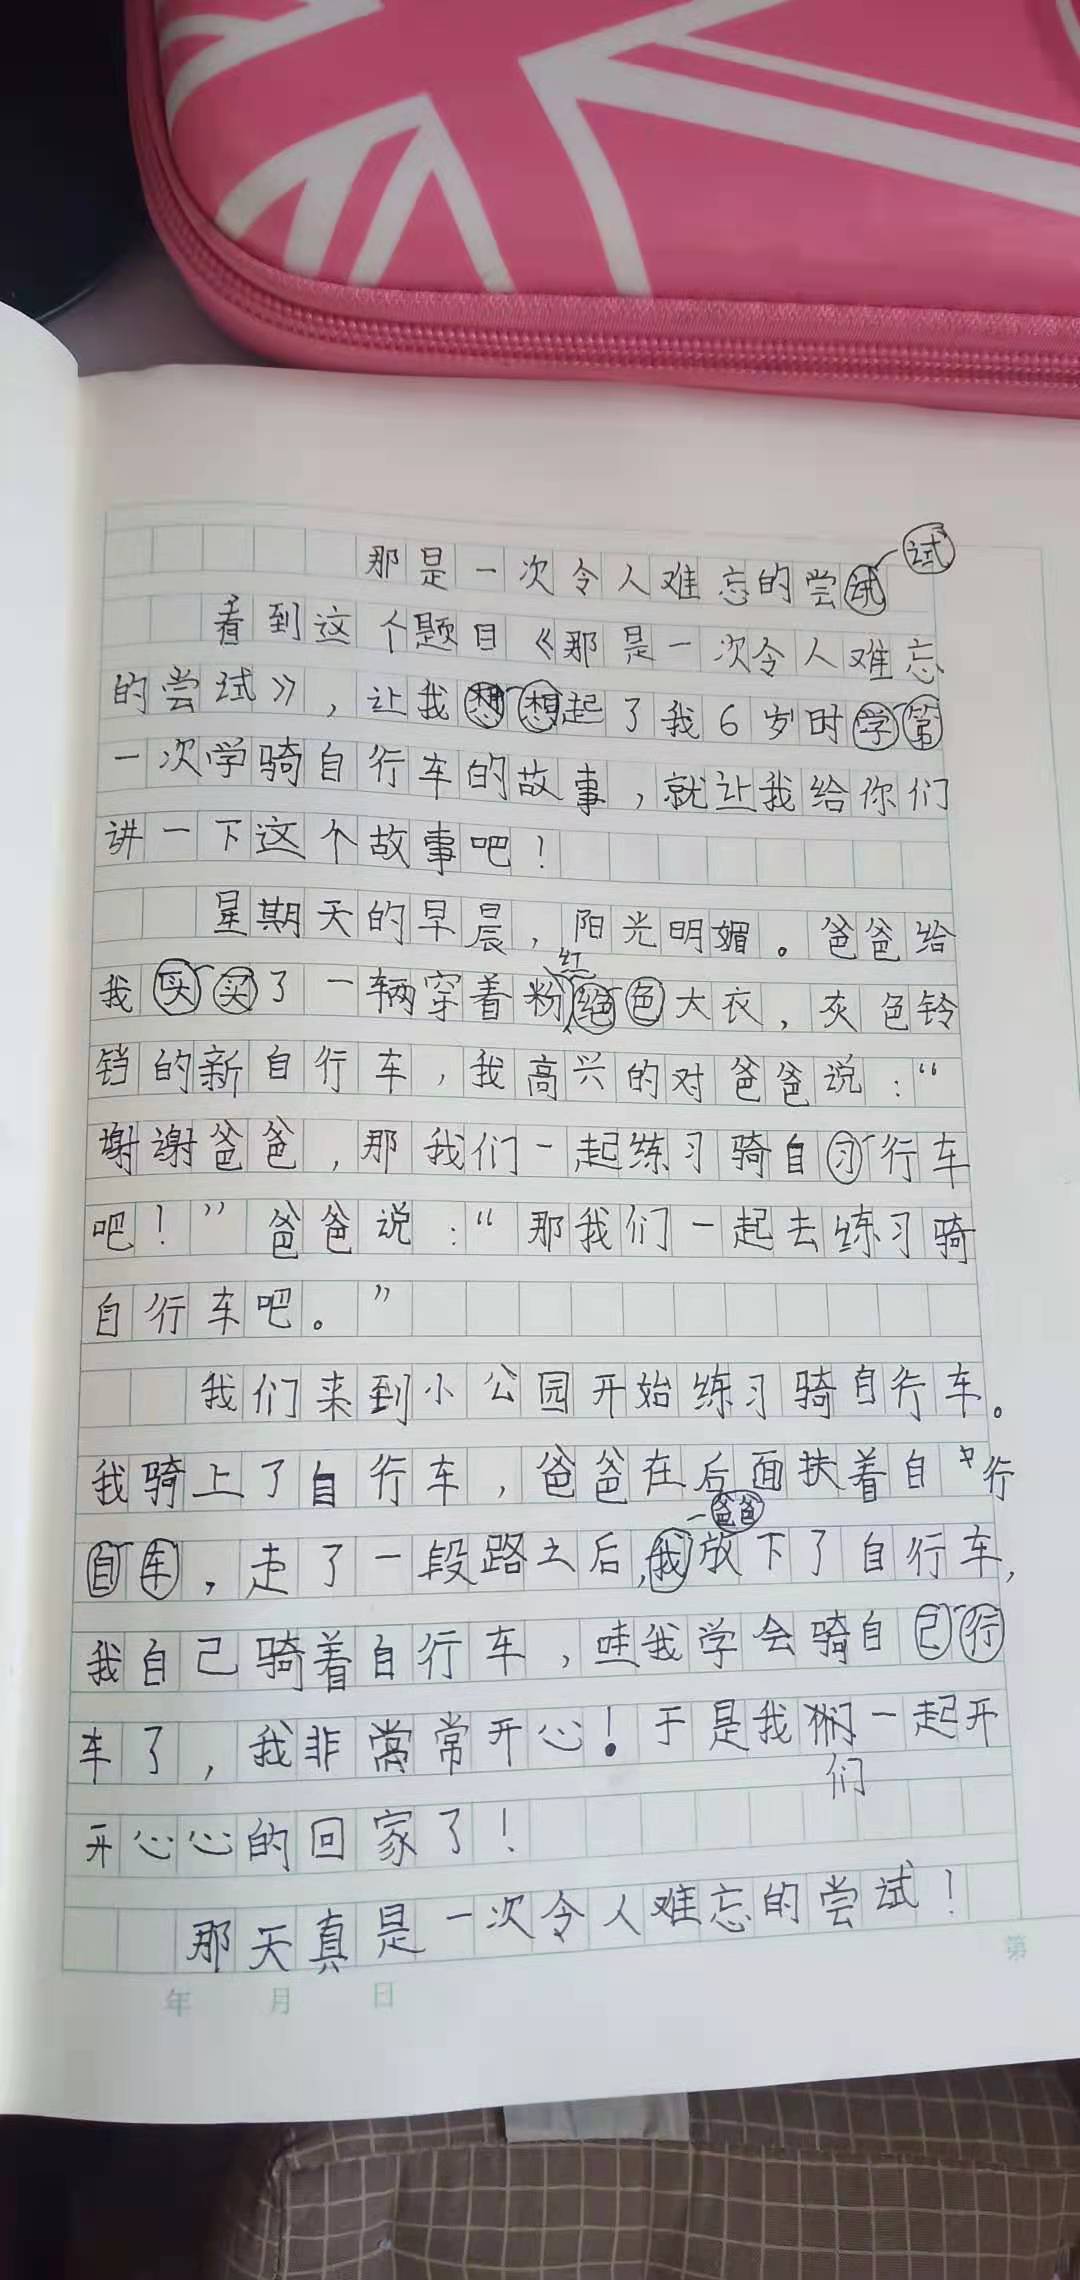 那是一次令人难忘的尝试试
看到这个题目《那是一次令人难忘
的尝试》，让我想想起了我6岁时学第
一次学骑自行车的故事，就让我给你们
讲一下这个故事吧！
星期天的早晨，阳光明媚。爸爸给
红
我买了一辆穿着粉色大衣，灰色铃
铛的新自行车，我高兴的对爸爸说：“
谢谢爸爸，那我们一起练习骑自习行车
吧！”爸爸说：“那我们一起去练习骑
自行车吧。”
我们来到小公园开始练习骑自行车。
我骑上了自行车，爸爸在后面扶着自行
爸爸
自车，走了一段路之后，我放下了自行车，
我自己骑着自行车，哇我学会骑自己行
车了，我非常开心！于是我一起开
们
开心心的回家了！
那天真是一次令人难忘的尝试！
年 月 日
第